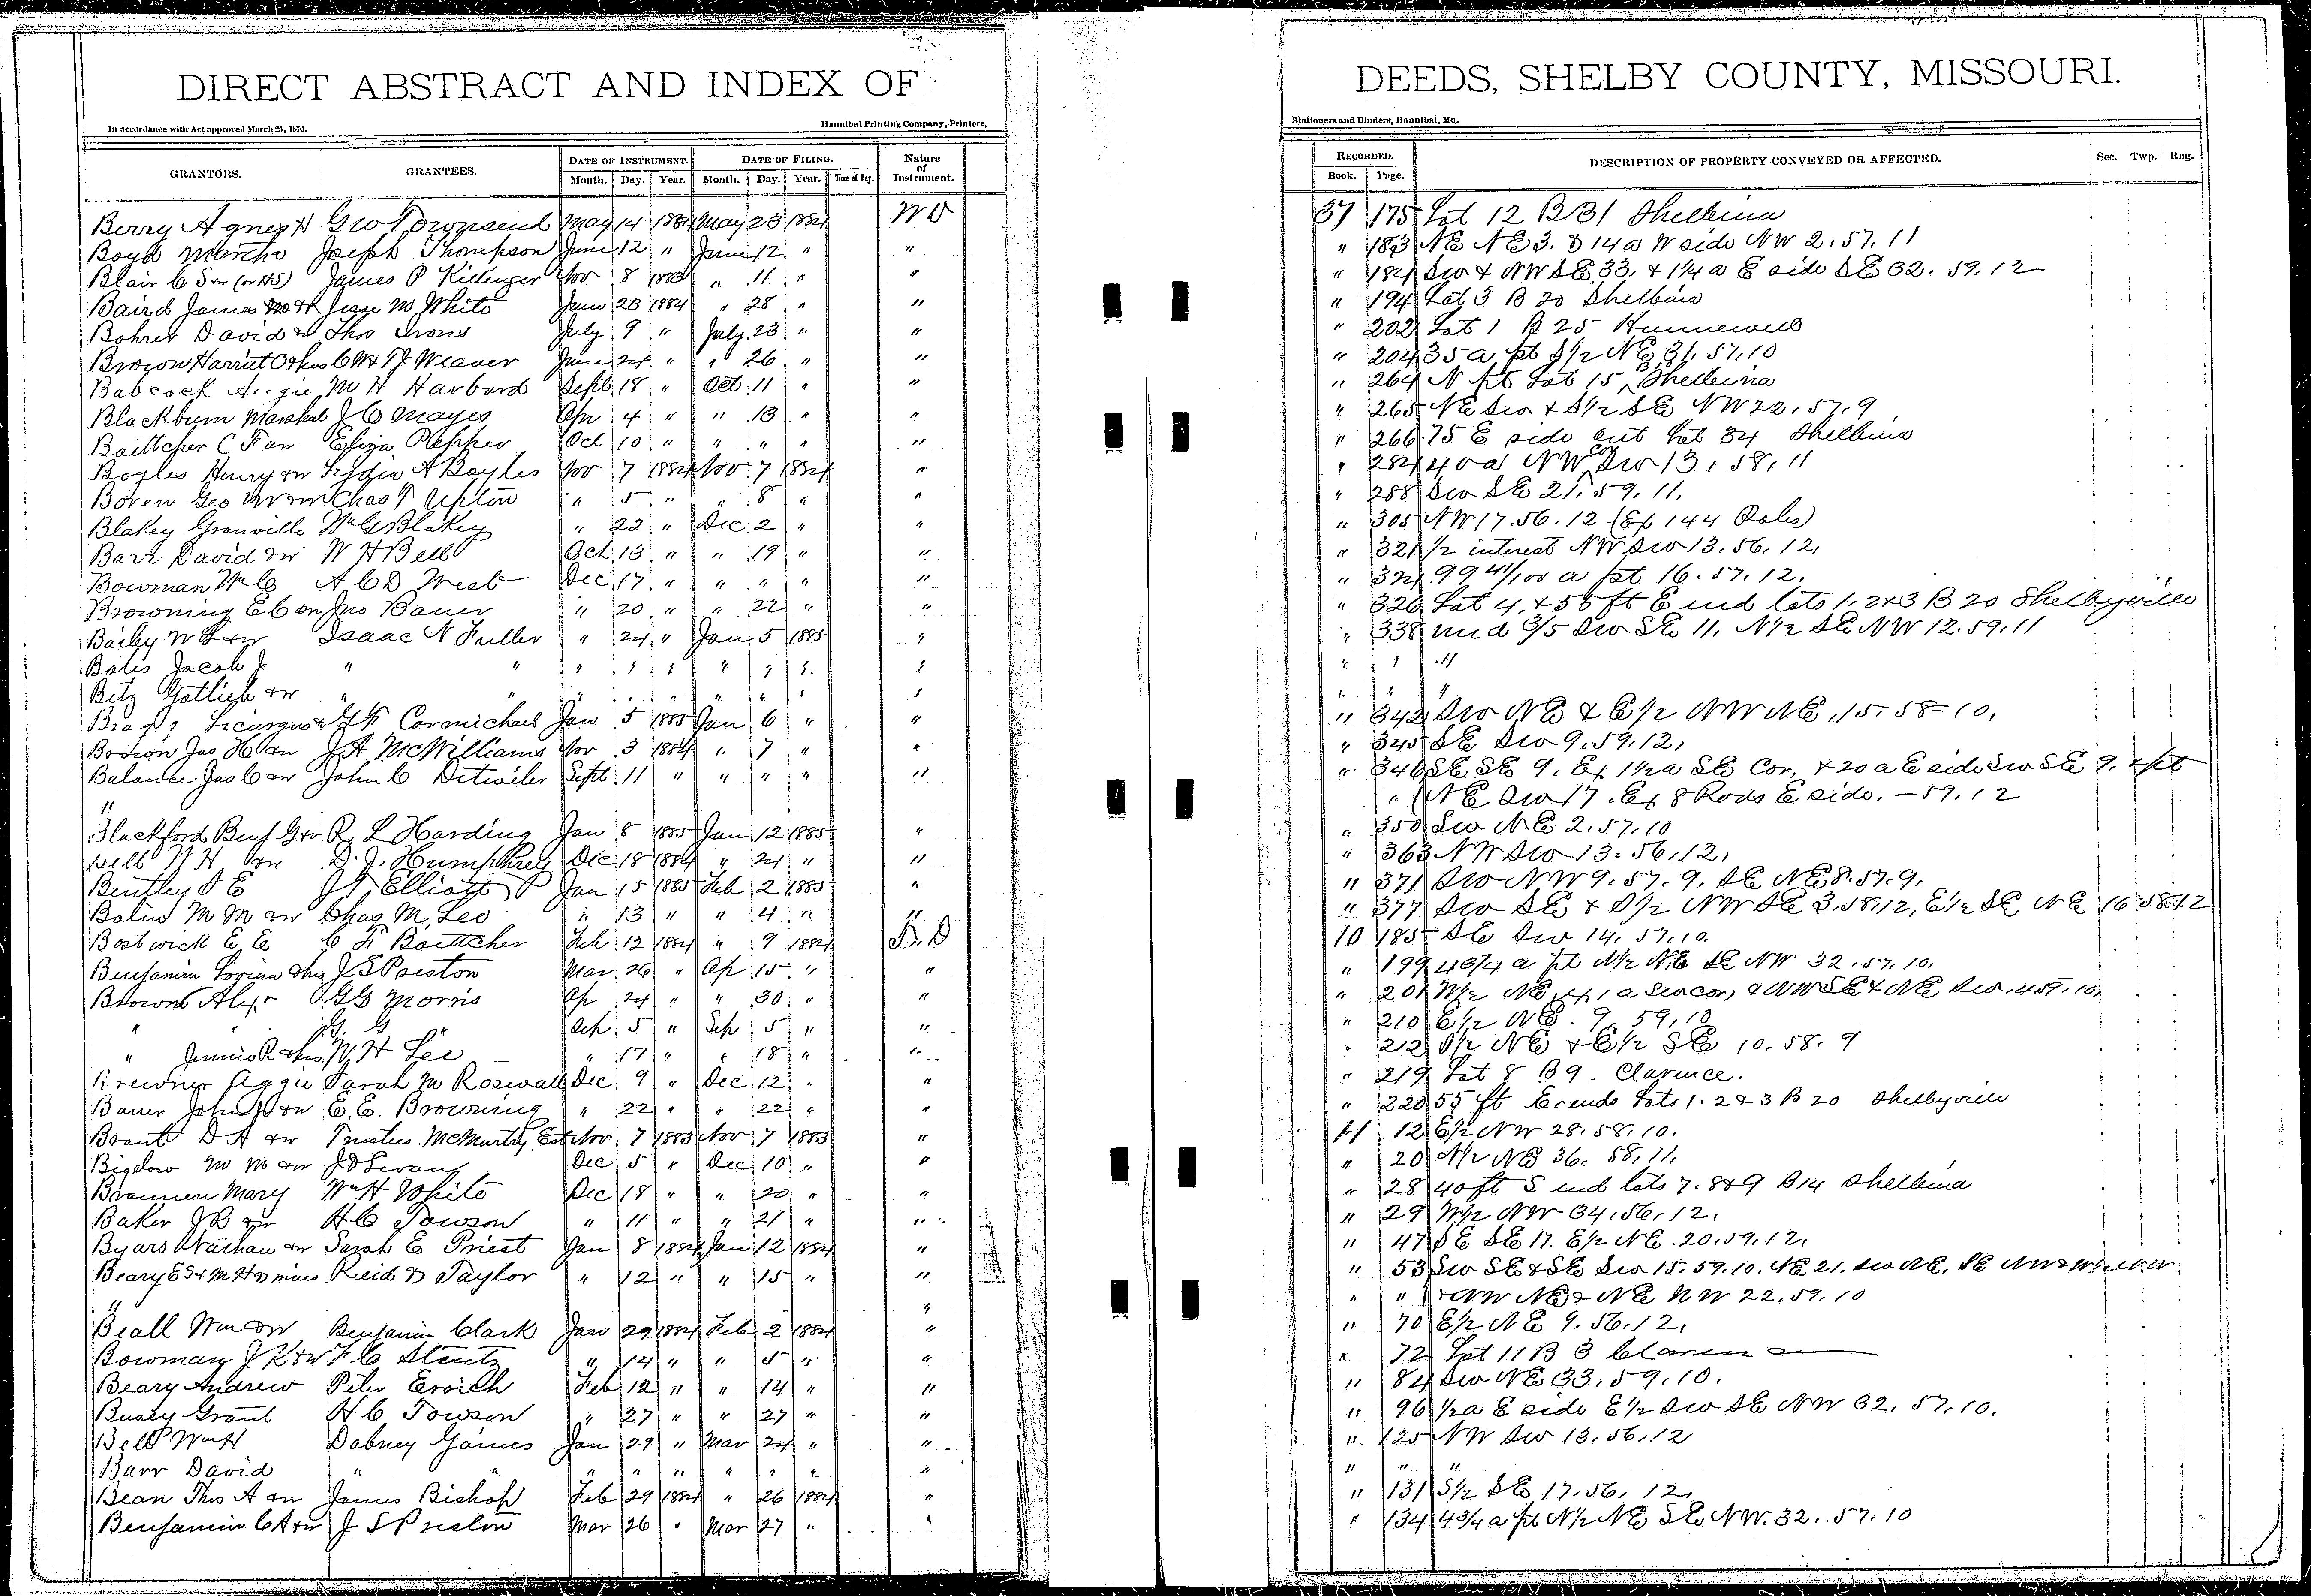 DIRECT ABSTRACT AND INDEX OF DEEDS, SHELBY COUNTY, MISSOURI.
In accordance with Act approved March 25, 1870. Hannibal Printing Company, Printers, Stationers and Binders, Hannibal, Mo.
GRANTORS. GRANTEES. DATE OF INSTRUMENT. DATE OF FILING. Nature of Instrument. RECORDED. DESCRIPTION OF PROPERTY CONVEYED OR AFFECTED. Sec. Twp. Rng.
Month. Day. Year. Month. Day. Year. Time of Day. Book. Page.
Berry Agnes H Geo Townsend May 14 1884 May 23 1884 WD 37 175 Lot 12 B 31 Shelbina
Boyd Martha Joseph Thompson June 12 " June 12 " " " 183 NE NE 3. & 14 a W side NW 2. 57. 11
Blair C S &w (or HS) James P Killinger Nov 8 1883 " 11 " " " 184 SW & NW SE 33. & 1¼ a E side SE 32. 59. 12
Baird James &w Jesse M White June 23 1884 " 28 " " " 194 Lot 3 B 20 Shelbina
Bohrer David &w Thos Irons July 9 " July 23 " " " 202 Lot 1 B 25 Hunnewell
Brown Harriet C &hus C W & T J Weaver June 24 " " 26 " " " 204 35 a pt S½ NE 31. 57. 10
Babcock Augie M H Harbord Sept 18 " Oct 11 " " " 264 N pt Lot 15 Shelbina
Blackburn Marshal J C Mayes Apr 4 " " 13 " " " 265 NE SW & S½ SE NW 22. 57. 9
Boettcher C F &w Eliza Pepper Oct 10 " " " " " " 266 75 E side out Lot 34 Shelbina
Boyles Henry &w Lydia A Boyles Nov 7 1884 Nov 7 1884 " " 284 40 a NW Cor SW 13. 58. 11
Boren Geo W &w Chas T Upton " 5 " " 8 " " " 288 SW SE 21. 59. 11.
Blakey Granville Wm G Blakey " 22 " Dec 2 " " " 305 NW 17. 56. 12 (Ex 144 Poles)
Barr David &w W H Bell Oct 13 " " 19 " " " 321 ½ interest NW SW 13. 56. 12,
Bowman Wm C A C D West Dec 17 " " " " " " 324 99 41/100 a pt 16. 57. 12.
Browning E C &w Jno Bauer " 20 " " 22 " " " 326 Lot 4. & 55 ft E end lots 1. 2 & 3 B 20 Shelbyville
Bailey W F &w Isaac N Fuller " 24 " Jan 5 1885 " " 338 und 3/5 SW SE 11. N½ SE NW 12. 59. 11
Bates Jacob J. " " " " " " " " " " " "
Betz Gotlieb &w " " " " " " " " " " " "
Bragg Licurgus &w J F Carmichael Jan 5 1885 Jan 6 " " " 342 SW NE & E½ NW NE, 15. 58 = 10,
Brown Jas H &w J A McWilliams Nov 3 1884 " 7 " " " 345 SE SW 9. 59. 12,
Balance Jas C &w John C Ditwiler Sept 11 " " " " " " 346 SE SE 9. Ex 1½ a SE Cor, & 20 a E side SW SE 9. & pt
" " NE SW 17. Ex 8 Rods E side. — 59. 12
Blackford Benj G &w R L Harding Jan 8 1885 Jan 12 1885 " " 350 SW NE 2. 57. 10
Bell W H &w D. J. Humphrey Dec 18 1884 " 24 " " " 363 NW SW 13. 56. 12,
Bentley J E J T Elliott Jan 15 1885 Feb 2 1885 " " 371 SW NW 9. 57. 9. SE NE 8. 57. 9.
Bolin M M &w Chas M Leo " 13 " " 4 " " " 377 SW SE & S½ NW SE 3. 58. 12, E½ SE NE 16 58. 12
Bostwick E E C F Boettcher Feb 12 1884 " 9 1884 T. D 10 185 SE SW 14. 57. 10.
Benjamin Lovina &hus J S Preston Mar 26 " Ap 15 " " " 199 4 3/4 a pt N½ NE SE NW 32. 57. 10.
Brown Alexr G G Morris Ap 24 " " 30 " " " 201 W½ NE, Ex 1 a SW cor, & NW SE & NE SW. 4. 59. 10.
" " G. G " Sep 5 " Sep 5 " " " 210 E½ NE. 9. 59. 10
" Jennie R &hus W H Lee " 17 " " 18 " " " 212 S½ NE & E½ SE 10. 58. 9
Brewner Aggie Sarah M Roswall Dec 9 " Dec 12 " " " 219 Lot 8 B 9. Clarence.
Bauer John &w E. E. Browning " 22 " " 22 " " " 220 55 ft E ends Lots 1. 2 & 3 B 20 Shelbyville
Brant D A &w Trustees McMurtry Est Nov 7 1883 Nov 7 1883 " 11 12 E½ NW 28. 58. 10.
Bigelow M M &w J D Swan Dec 5 " Dec 10 " " " 20 N½ NE 36. 58. 11,
Brannen Mary Wm H White Dec 18 " " 20 " " " 28 40 ft S end lots 7. 8 & 9 B 14 Shelbina
Baker J B &w H C Towson " 11 " " 21 " " " 29 W½ NW 34. 56. 12.
Byars Nathan &w Sarah E Priest Jan 8 1884 Jan 12 1884 " " 47 SE SE 17. E½ NE. 20. 59. 12,
Beary E S & M H Reid & Taylor " 12 " " 15 " " " 53 SW SE & SE SW 15. 59. 10. NE 21. SW NE. SE NW & W½ NW
" " " " & NW NE & NE NW 22. 59. 10
Beall Wm &w Benjamin Clark Jan 29 1884 Feb 2 1884 " " 70 E½ NE 9. 56. 12,
Bowman J K &w F. C Stentz " 14 " " 5 " " " 72 Lot 11 B 3 Clarence
Beary Andrew Peter Ersich Feb 12 " " 14 " " " 84 SW NE 33. 59. 10.
Busey Grant H C Towson " 27 " " 27 " " " 96 ½ a E side E½ SW SE NW 32. 57. 10.
Bell Wm H Dabney Gaines Jan 29 " Mar 24 " " " 125 NW SW 13. 56. 12
Barr David " " " " " " " " " " " "
Bean Thos A &w James Bishop Feb 29 1884 " 26 1884 " " 131 S½ SE 17. 56. 12,
Benjamin C A &w J S Preston Mar 26 " Mar 27 " " " 134 4 3/4 a pt N½ NE SE NW. 32. 57. 10